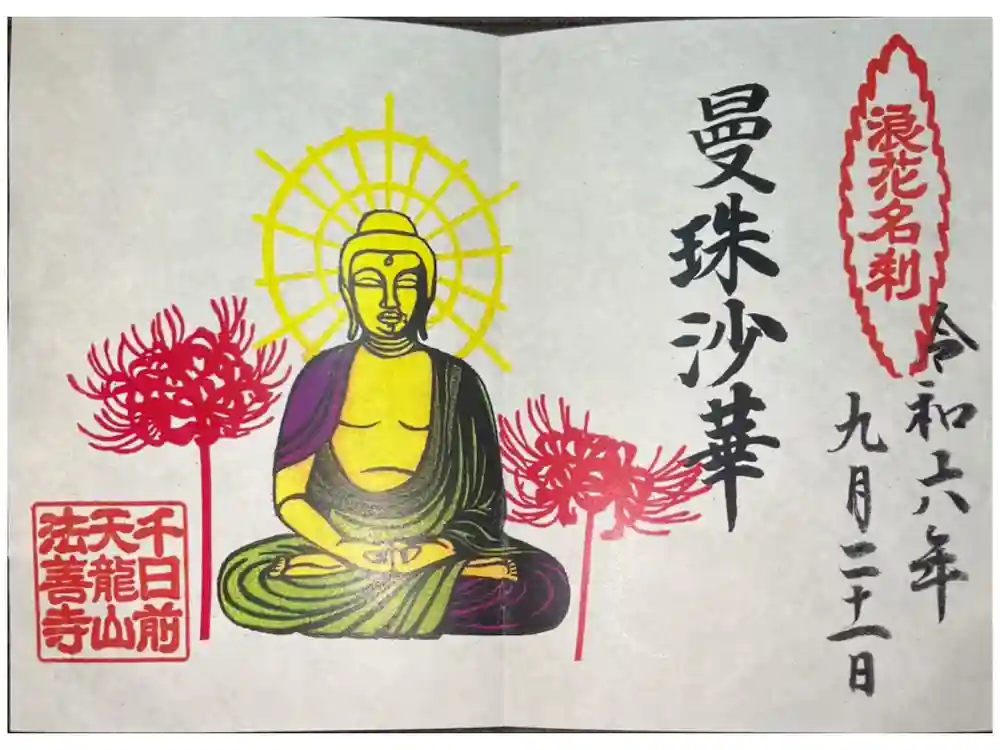 浪花名刹
令和六年
九月二十一日
曼珠沙華
千日前
天龍山
法善寺